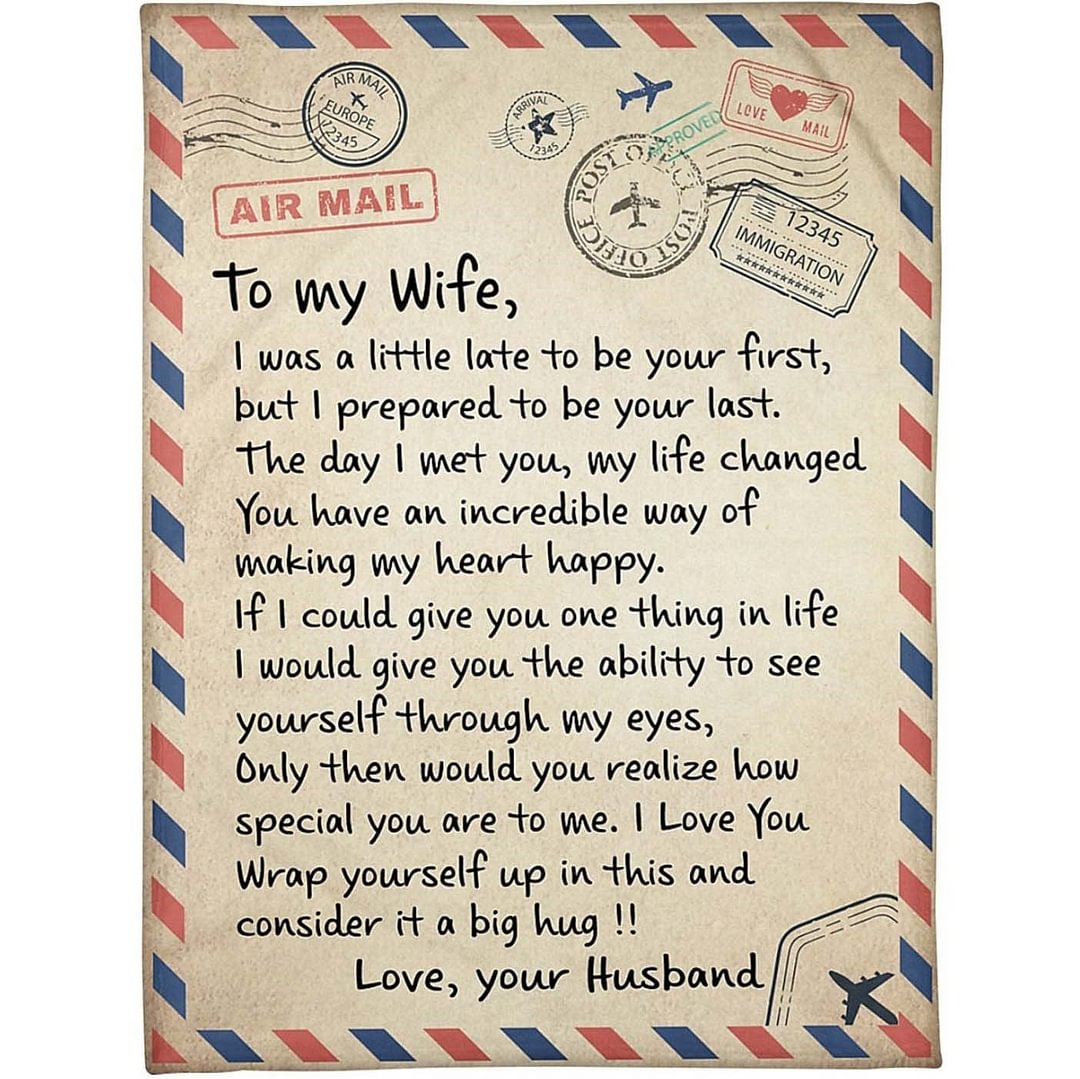 AIR MAIL
EUROPE
12345
ARRIVAL
12345
APPROVED
LOVE MAIL
AIR MAIL
POST OFFICE
POST OFFICE
12345
IMMIGRATION
To my Wife,
I was a little late to be your first,
but I prepared to be your last.
The day I met you, my life changed
You have an incredible way of
making my heart happy.
If I could give you one thing in life
I would give you the ability to see
yourself through my eyes,
Only then would you realize how
special you are to me. I Love You
Wrap yourself up in this and
consider it a big hug !!
Love, your Husband